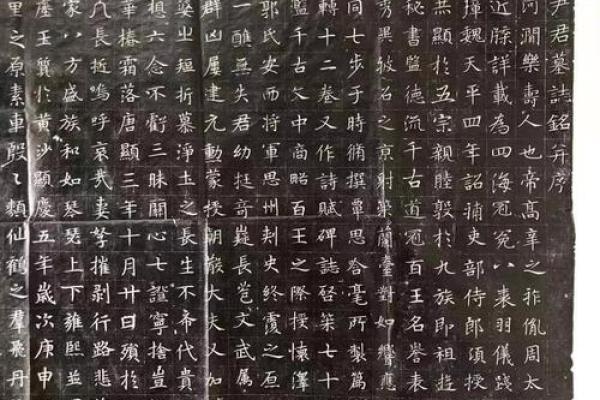 尹君墓誌銘并序
河澗樂壽人也帝高辛之祚胤周太
近牌詳載為四海冠冕八裘羽儀踐
擇魏天平四年詔補吏部侍郎頃授
共顯於五宗親睦毅於九族即祖遊
秘書監德流千古道冠百王名譽表
秀異彼石之京射策蘭臺對如響應
同七步于時脩撰覃思含毫所製篇
轉十二卷又作詩賦碑誌啓策七十
監千古文中商略百王之際授懷澤
郭氏安西將軍思州刺史終霞之原
一醮無失君幼挺奇嶷長苞文武屬
群凶屢建元勳蒙授朝散大夫又加
娑之短折慕淨土之長生不希代貴
想六念不虧三昧關心七證寧捨豈
華椿霜落唐顯三年十月廿日殯於
長挺嗚呼哀哉妻孥摧剥行路悲
家八方盛族和如琴瑟上下雍熙並
王質於黄沙顯慶五年歲次庚申
里之原素車殷〻類仙鶴之羣飛丹